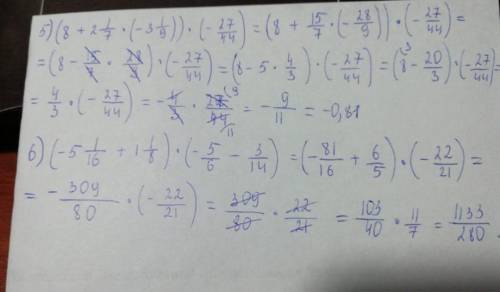 5) (8 + 2 1/7 · (-3 1/9)) · (-27/44) = (8 + 15/7 · (-28/9)) · (-27/44) =
= (8 - 15/7 · 28/9) · (-27/44) = (8 - 5 · 4/3) · (-27/44) = (8 3 - 20/3) · (-27/44) =
= 4/3 · (-27/44) = - 4/3 · 27 9/44 11 = - 9/11 = -0,81
6) (-5 1/16 + 1 1/8) · (- 5/6 - 3/14) = (-81/16 + 6/5) · (-22/21) =
= -309/80 · (-22/21) = 309/80 · 22/21 = 103/40 · 11/7 = 1133/280.